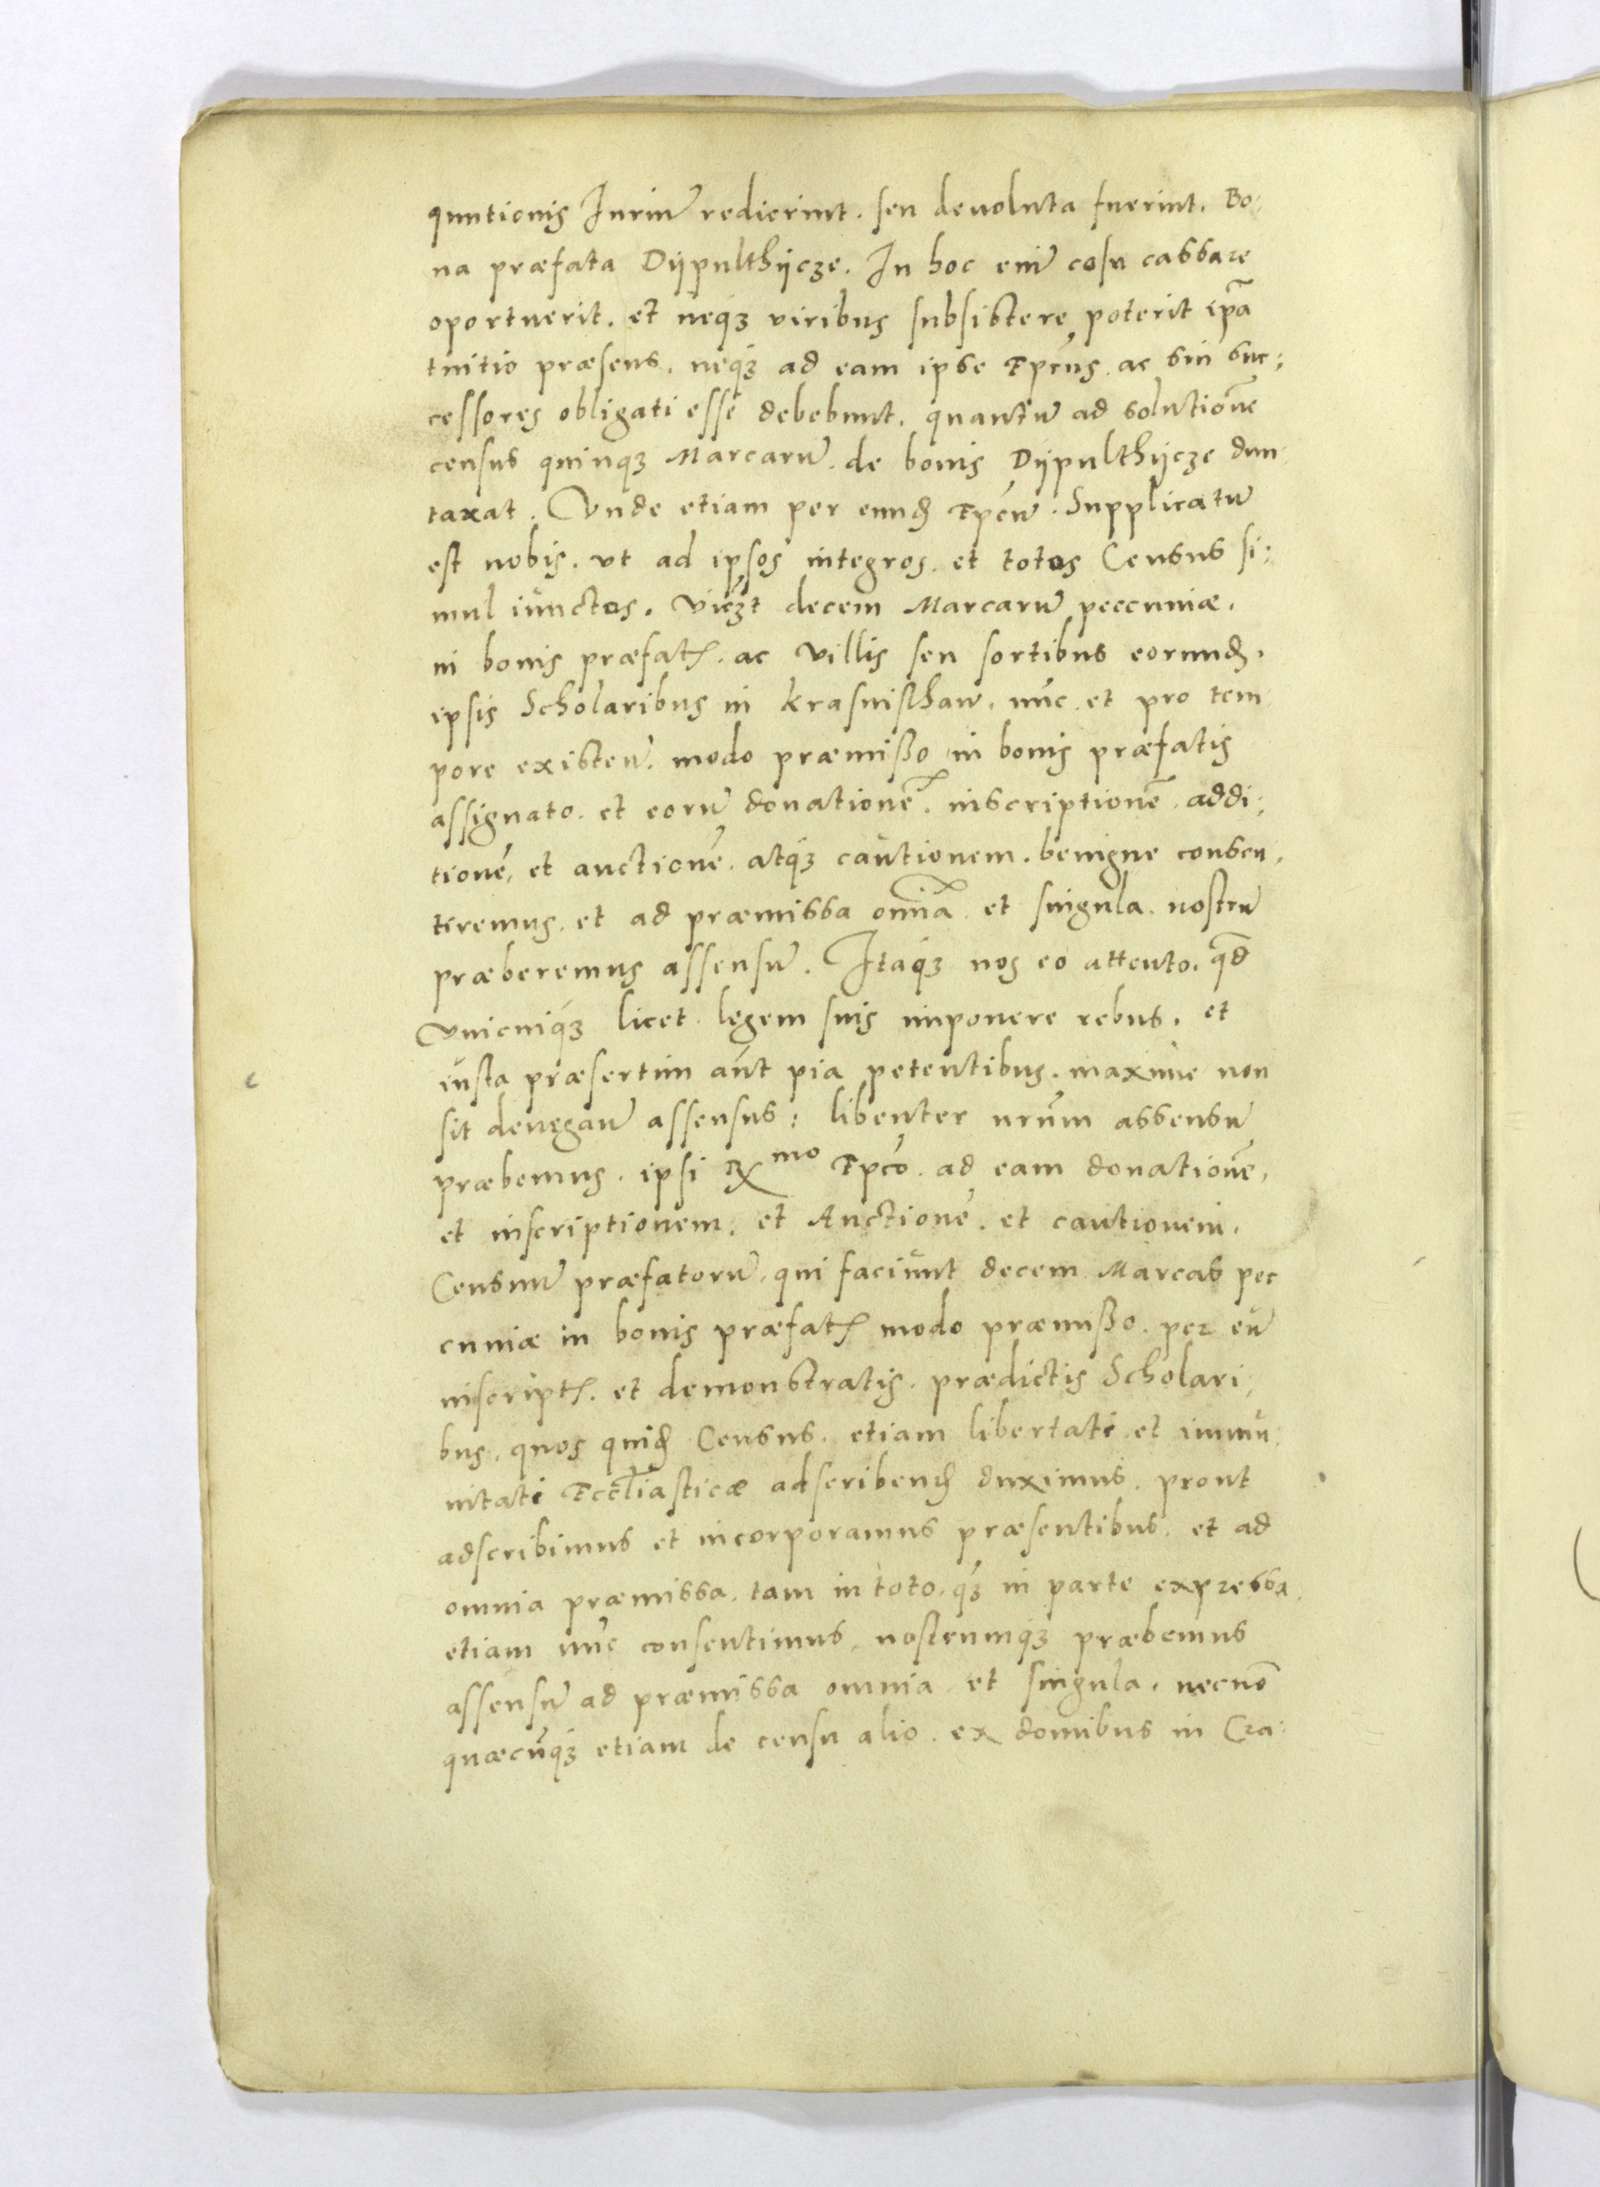 quutionis Juriũ redierint. seu deuoluta fuerint. Bo:
na præfata Dÿpulthÿcze. In hoc enĩ casu cassare
oportuerit. et neqꝫ viribus subsistere poterit ip̃a
tuitio præsens. neqꝫ ad eam ipse Ep̃cus. ac sui suc:
cessores obligati esse debebunt. quantũ ad solutionẽ
census quinqꝫ Marcarũ. de bonis Dÿpulthÿcze dun
taxat. Vnde etiam per eundẽ Ep̃cũ. Supplicatũ
est nobis. vt ad ipsos integros. et totos Census si:
mul iunctos. viczt decem Marcarũ peccuniæ.
in bonis præfatꝭ. ac villis seu sortibus eorundẽ.
ipsis Scholaribus in Krasnisthaw. nũc et pro tem
pore existeñ. modo præmißo in bonis præfatis
assignato. et eorũ donationẽ. inscriptionẽ. addi:
tionẽ, et auctionẽ. atqꝫ cautionem. benigne consen
tiremus. et ad præmissa om̃ia et singula. nostrũ
præberemus assensũ. Itaqꝫ nos eo attento. qđ
vnicuiqꝫ licet legem suis imponere rebus. et
iusta præsertim aũt pia petentibus. maxime non
sit denegañ assensus: libenter nrũm assensũ
præbemus. ipsi Rx mo Ep̃co. ad eam donationẽ,
et inscriptionem. et Auctionẽ. et cautionem.
Censuũ præfatorũ. qui faciunt decem Marcas pec
cuniæ in bonis præfatꝭ modo præmißo. per eũ
inscriptꝭ. et demonstratis. prædictis Scholari:
bus. quos quidẽ Census. etiam libertati et immu
nitati Eccl̃iasticæ adscribendẽ duximus. prout
adscribimus et incorporamus præsentibus. et ad
omnia præmissa. tam in toto. q̃ꝫ in parte expressa
etiam nũc consentimus. nostrumqꝫ præbemus
assensũ ad præmissa omnia et singula. necnõ
quæcũqꝫ etiam de censu alio. ex domibus in Cra: